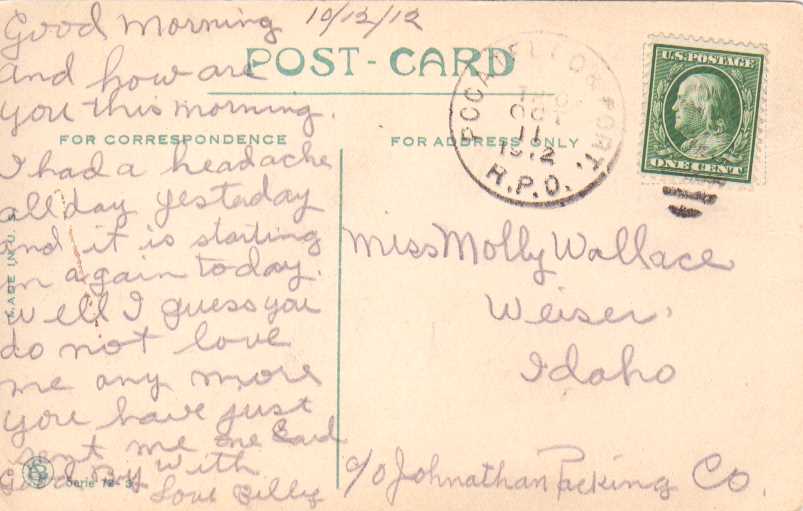 Good Morning 10/12/12
and how are
you this morning.
I had a headache
all day yesteday
and it is starting
in again today.
Well I guess you
do not love
me any more
you have just
sent me one Card
Good By With
Love Billy
POST-CARD
FOR CORRESPONDENCE
FOR ADDRESS ONLY
MADE IN U.S.
Serie 72-3
POCATELLO & PORT.
OCT
11
1912
R.P.O.
U.S. POSTAGE
ONE CENT
Miss Molly Wallace
Weiser,
Idaho
c/o Johnathan Packing Co.